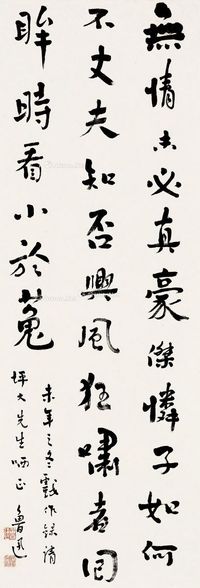 無情未必真豪傑憐子如何
不丈夫知否興風狂嘯者回
眸時看小於菟
未年之冬戲作錄請
坪大先生哂正
魯迅